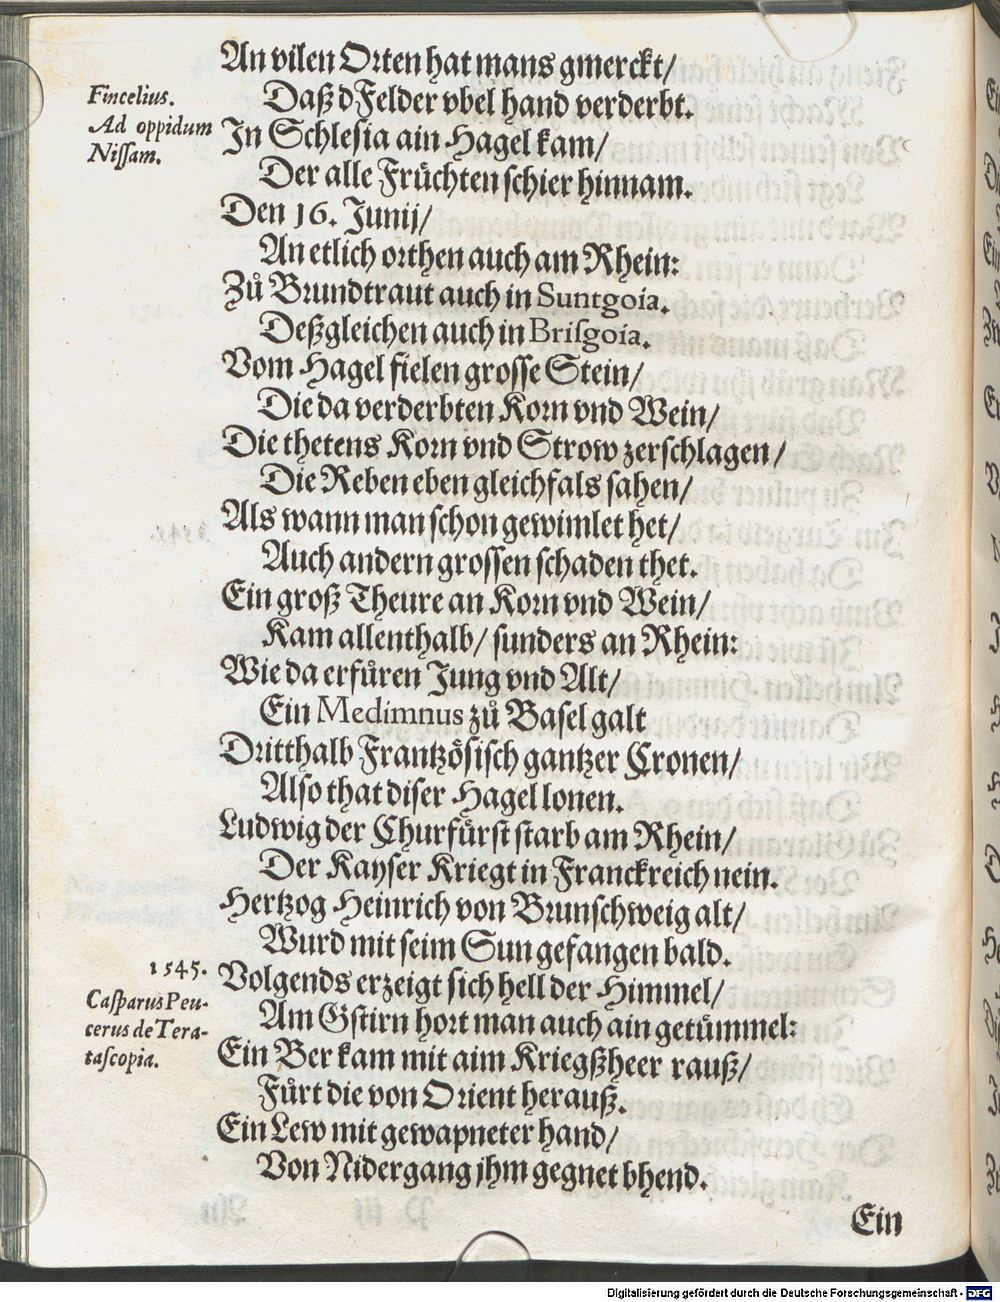 An vilen Orten hat mans gmerckt/
Daß d Felder vbel hand verderbt.
Fincelius.
Ad oppidum
Nissam.
In Schlesia ain Hagel kam/
Der alle Früchten schier hinnam.
Den 16. Junij/
An etlich orthen auch am Rhein:
Zů Brundtraut auch in Suntgoia.
Deßgleichen auch in Brisgoia.
Vom Hagel fielen grosse Stein/
Die da verderbten Korn vnd Wein/
Die thetens Korn vnd Strow zerschlagen/
Die Reben eben gleichfals sahen/
Als wann man schon gewimlet het/
Auch andern grossen schaden thet.
Ein groß Theure an Korn vnd Wein/
Kam allenthalb/ sunders an Rhein:
Wie da erfůren Jung vnd Alt/
Ein Medimnus zů Basel galt
Dritthalb Frantzösisch gantzer Cronen/
Also that diser Hagel lonen.
Ludwig der Churfürst starb am Rhein/
Der Kayser Kriegt in Franckreich nein.
Hertzog Heinrich von Brunschweig alt/
Wurd mit seim Sun gefangen bald.
1545.
Casparus Peu-
cerus de Tera-
tascopia.
Volgends erzeigt sich hell der Himmel/
Am Gstirn hort man auch ain getümmel:
Ein Ber kam mit aim Kriegßheer rauß/
Fůrt die von Orient herauß.
Ein Lew mit gewapneter hand/
Von Nidergang jhm gegnet bhend.
Ein
Digitalisierung gefördert durch die Deutsche Forschungsgemeinschaft - DFG